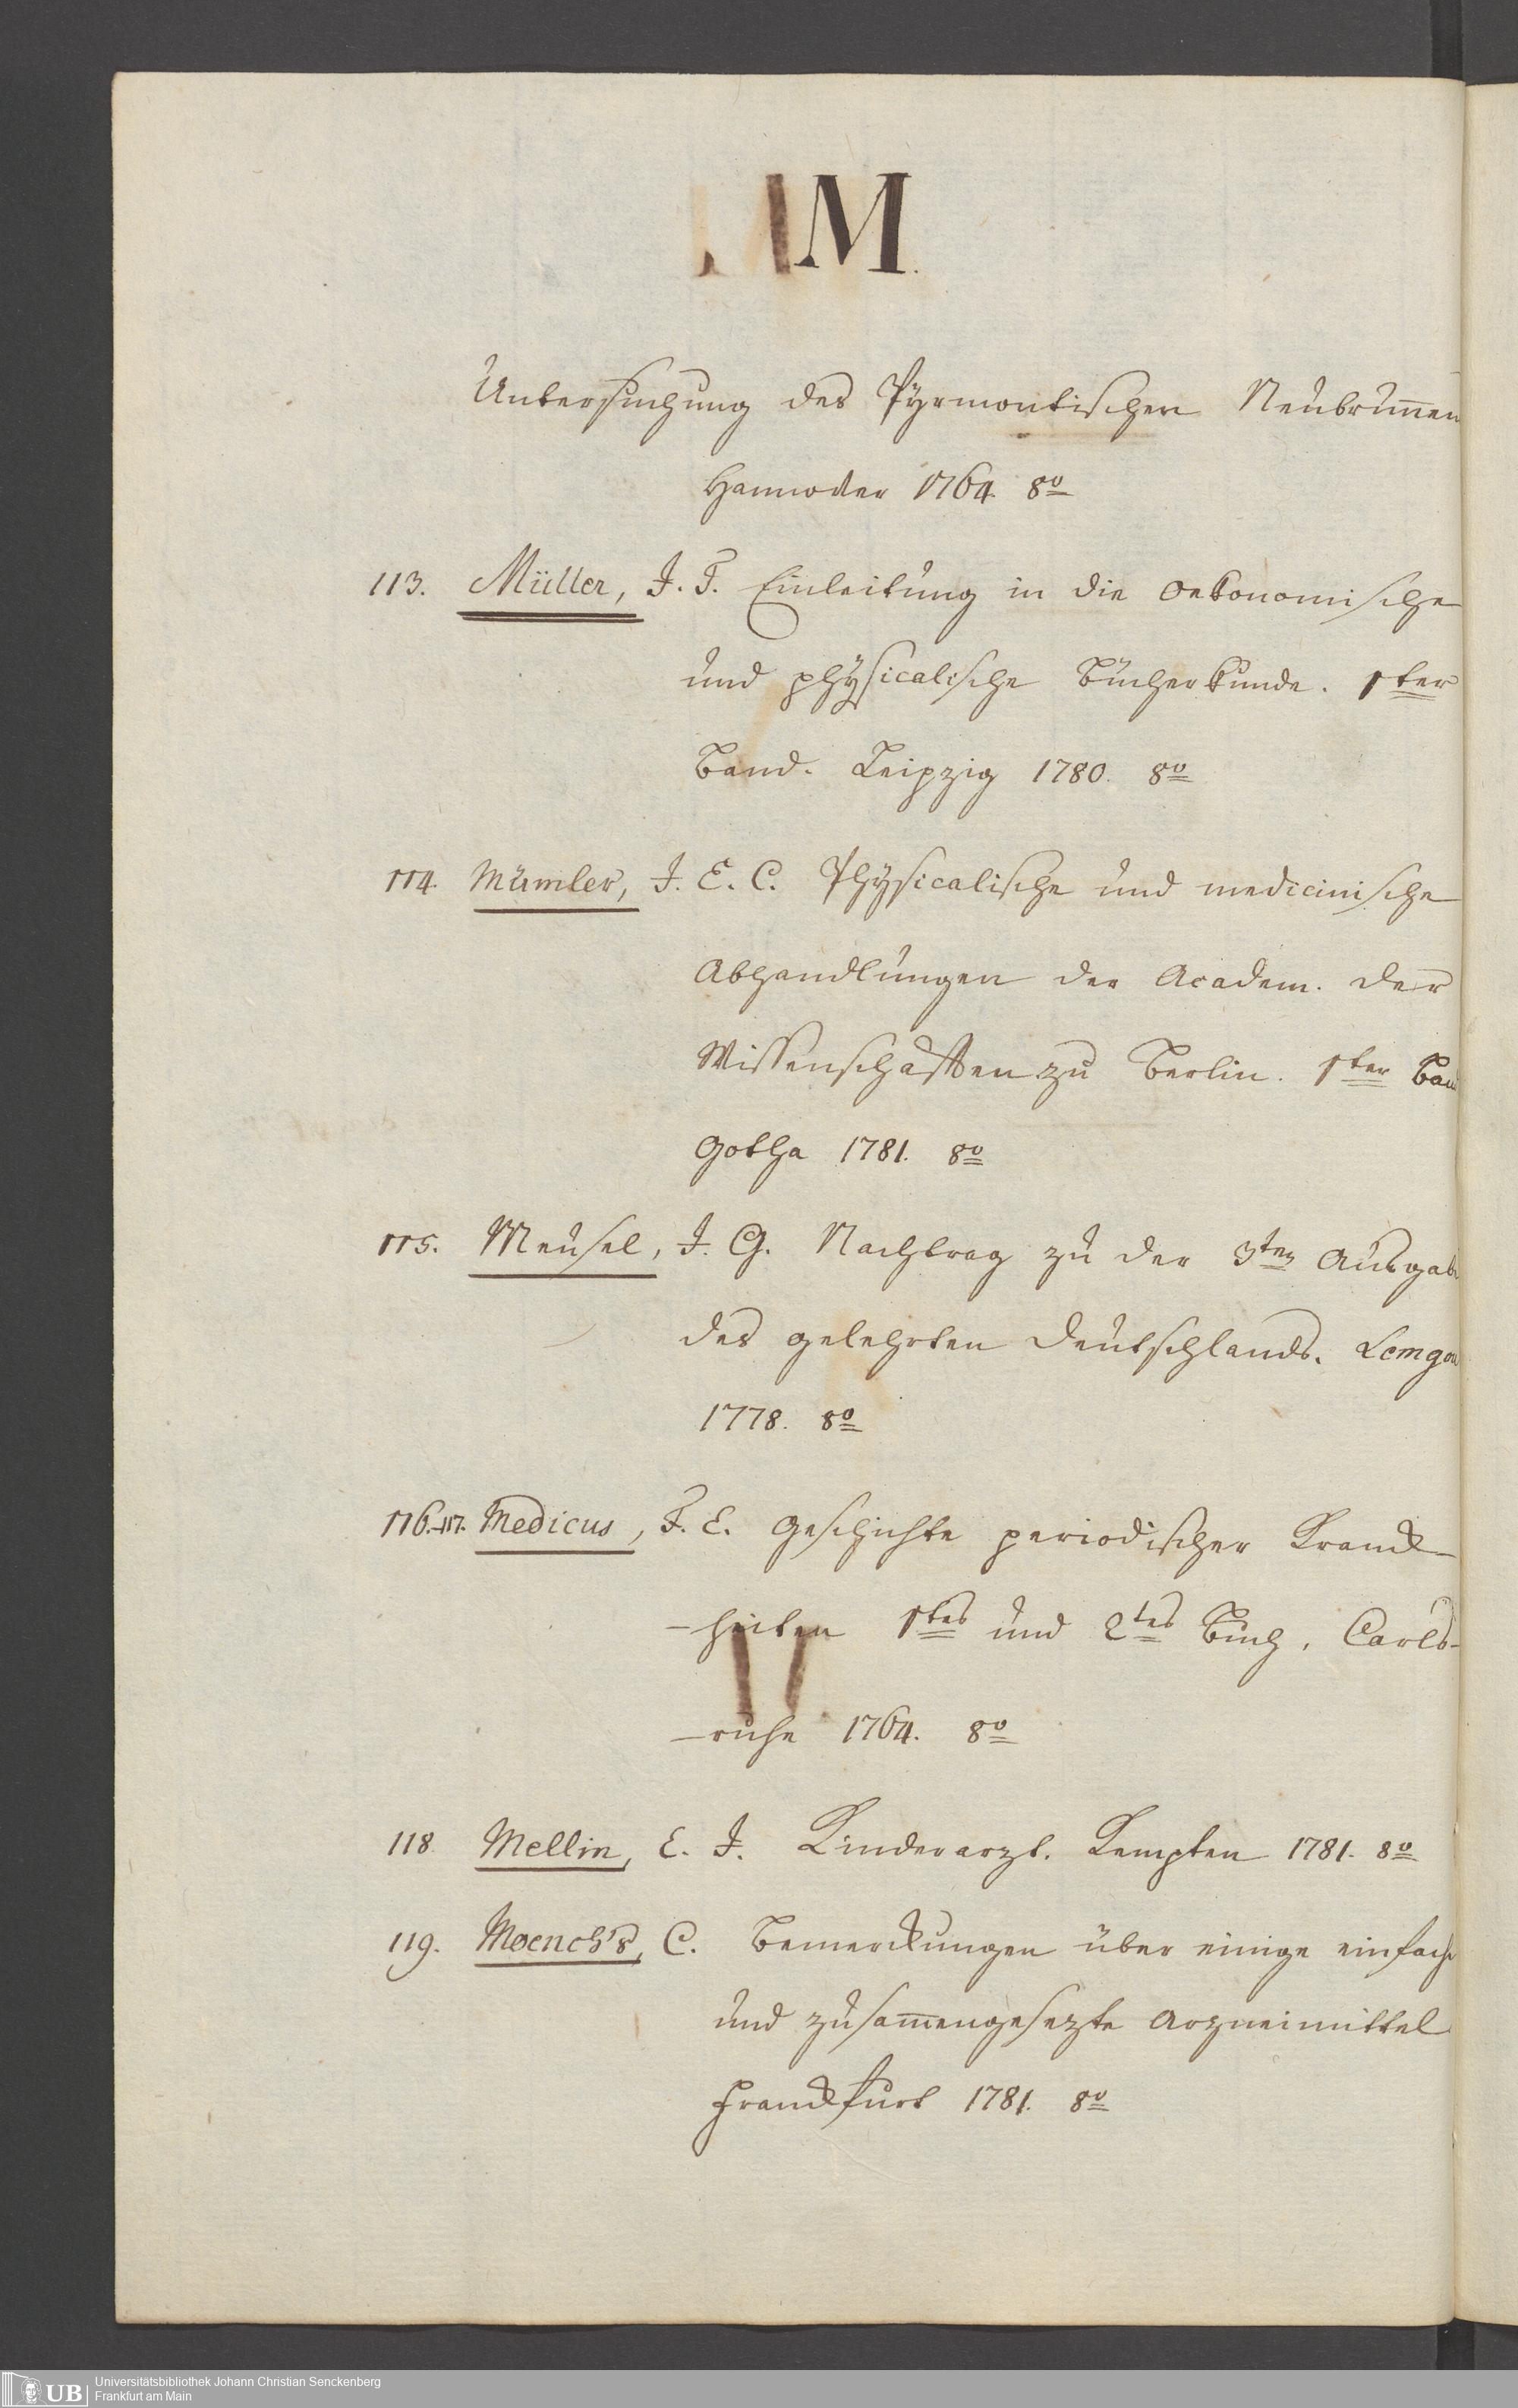 M.
Untersuchung des Pyrmontischen Neubrunnen
Hannover 1764. 8º
113. Müller, J. F. Einleitung in die oekonomische
und physicalische Bücherkunde. 1ster
Band. Leipzig 1780. 8º
114. Mümler, J. E. C. Physicalische und medicinische
Abhandlungen der Academ. der
Wissenschafften zu Berlin. 1ster Band
Gotha 1781. 8º
115. Meusel, J. G. Nachtrag zu der 3ten Ausgabe
des gelehrten Deutschlands. Lemgou
1778. 8º
116.-117. Medicus, F. C. Geschichte periodischer Kranck-
-heiten 1tes und 2tes Buch. Carls-
-ruhe 1764. 8º
118 Mellin, C. J. Kinderarzt. Kempten 1781. 8º
119. Moench's, C. Bemerckungen über einige einfache
und zusam̅engesezte Arzneimittel
Franckfurt 1781. 8º
UB Universitätsbibliothek Johann Christian Senckenberg
Frankfurt am Main